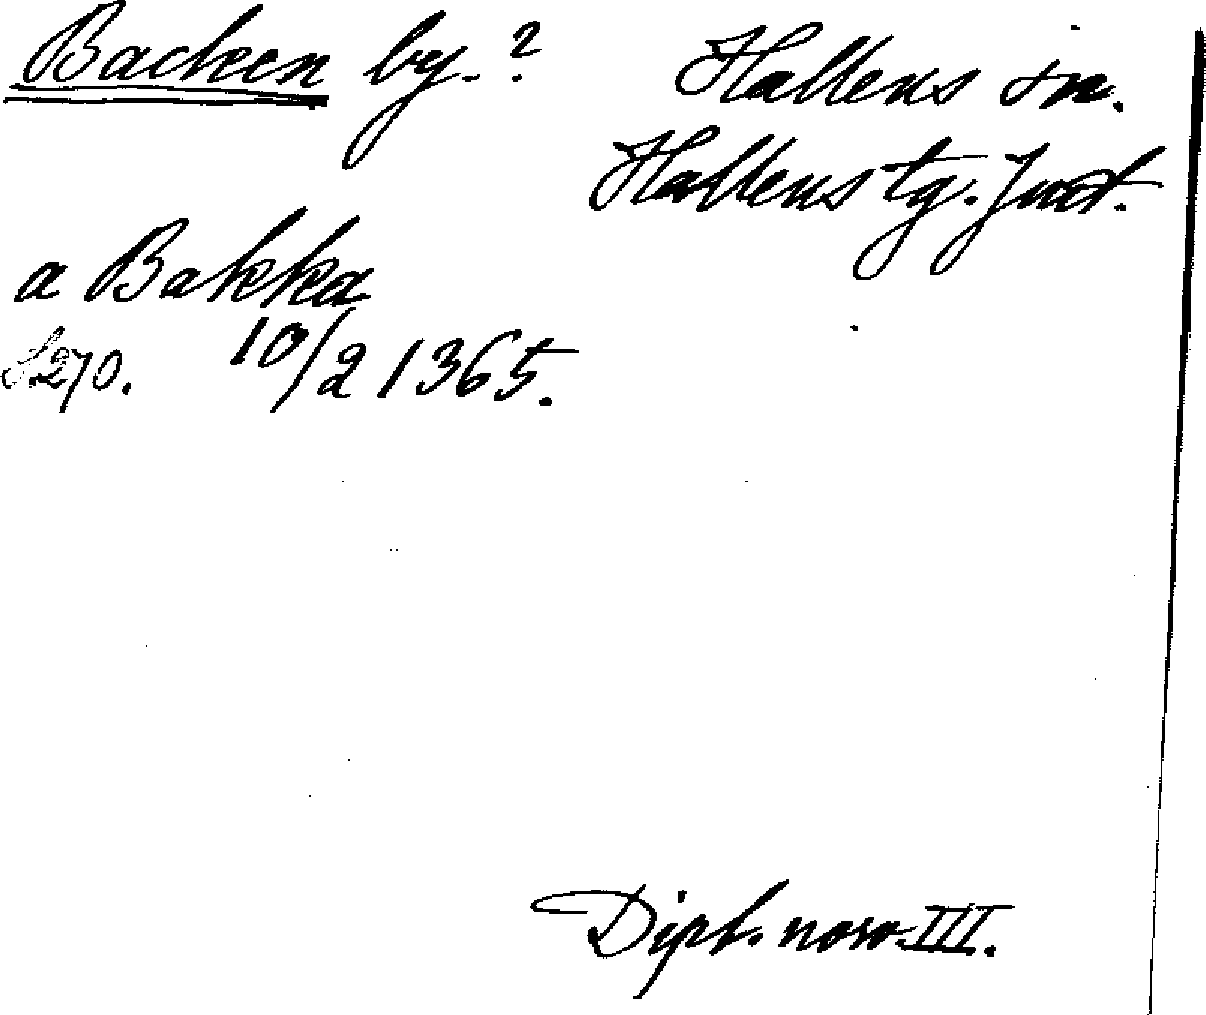 Backen by. ?
Hallens sn.
Hallens tg. Jmt.
a Bakka
S. 270. 10/2 1365.
Dipl. norv. III.